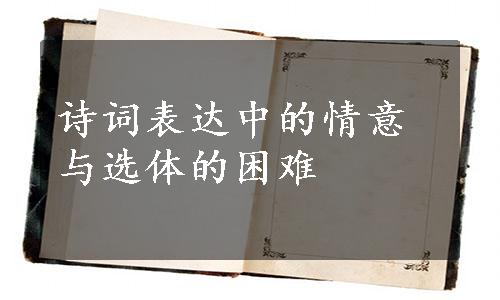 诗词表达中的情意
与选体的困难